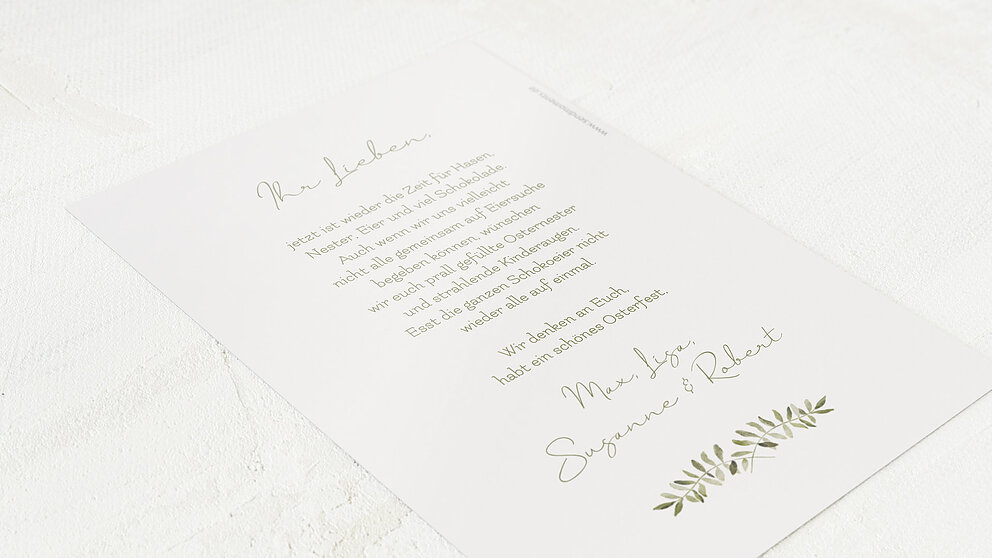 Ihr Lieben,
jetzt ist wieder die Zeit für Hasen,
Nester, Eier und viel Schokolade.
Auch wenn wir uns vielleicht
nicht alle gemeinsam auf Eiersuche
begeben können, wünschen
wir euch prall gefüllte Osternester
und strahlende Kinderaugen.
Esst die ganzen Schokoeier nicht
wieder alle auf einmal.
Wir denken an Euch,
habt ein schönes Osterfest,
Max, Lisa,
Susanne & Robert
www.sendmoments.de